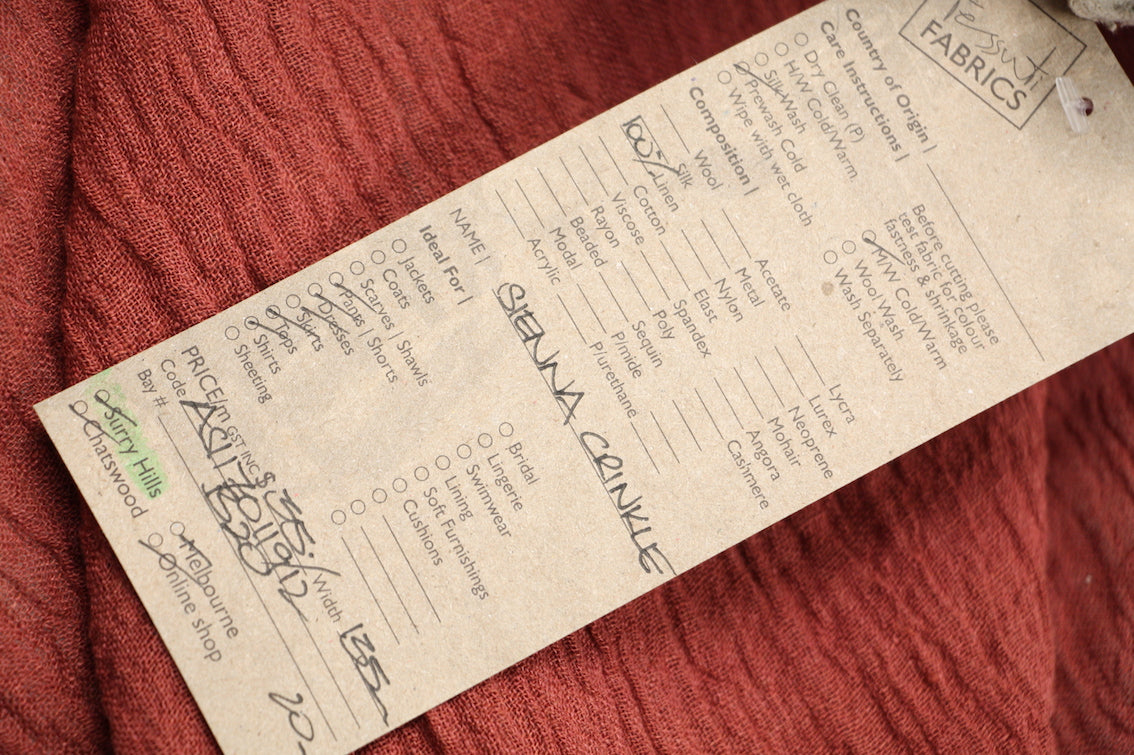 Tessuti
FABRICS
Country of Origin |
Care Instructions |
Dry Clean (P)
H/W Cold/Warm
Silk Wash
Prewash Cold
Wipe with wet cloth
Before cutting please
test fabric for colour
fastness & shrinkage
M/W Cold/Warm
Wool Wash
Wash Separately
Composition |
Wool
Silk
100% Linen
Cotton
Viscose
Rayon
Beaded
Modal
Acrylic
Acetate
Metal
Nylon
Elast
Spandex
Poly
Sequin
P/mide
P/urethane
Lycra
Lurex
Neoprene
Mohair
Angora
Cashmere
NAME | SIENNA CRINKLE
Ideal For |
Jackets
Coats
Scarves | Shawls
Pants | Shorts
Dresses
Skirts
Tops
Shirts
Sheeting
Bridal
Lingerie
Swimwear
Lining
Soft Furnishings
Cushions
PRICE/m GST INC $ 35./ Width 135
Code
Bay #
Surry Hills
Chatswood
Melbourne
Online shop
20-